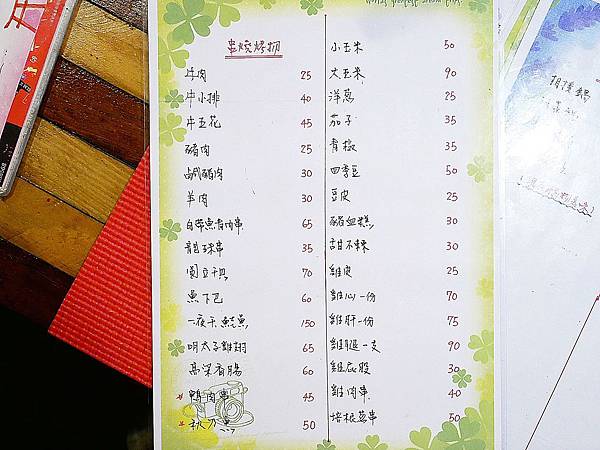 串燒烤物
牛肉 25
牛小排 40
牛五花 45
豬肉 25
鹹豬肉 30
羊肉 30
白帶魚骨肉串 65
龍珠串 35
圓立干貝 70
魚下巴 60
一夜干魷魚 150
明太子雞翅 65
高粱香腸 60
鴨肉串 45
秋刀魚 50
小玉米 50
大玉米 90
洋蔥 25
茄子 35
青椒 35
四季豆 50
豆皮 25
豬血糕 30
甜不辣 30
雞皮 25
雞心一份 70
雞肝一份 75
雞腿一支 90
雞屁股 30
雞肉串 40
培根蔥串 50